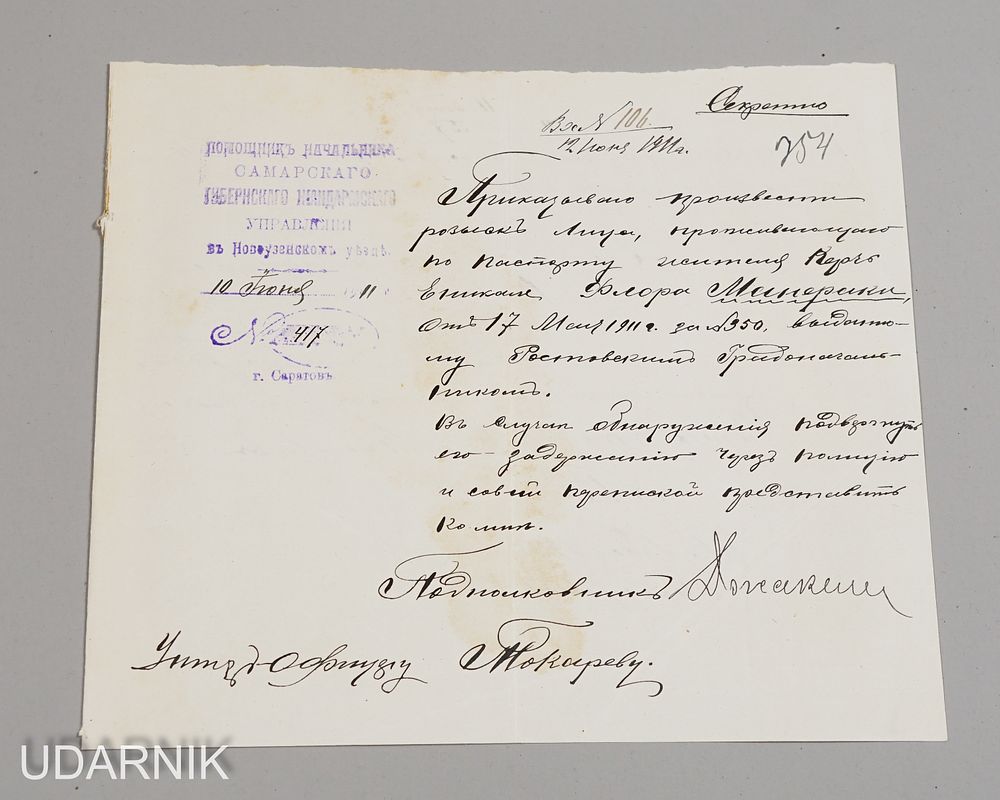 Секретно
Вх № 106.
12 Июня 1911г.
254
ПОМОЩНИКЪ НАЧАЛЬНИКА
САМАРСКАГО
ГУБЕРНСКАГО ЖАНДАРМСКАГО
УПРАВЛЕНІЯ
въ Новоузенскомъ уѣздѣ.
10 Июня 1911
№ 417
г. Саратовъ
Приказываю произвести
розыскъ лица, проживающаго
по паспорту жителя Керчь
Еникале Флора Минераки,
отъ 17 Мая 1911 г. за №350, выданно-
му Ростовскимъ Градоначаль-
никомъ.
Въ случаѣ обнаруженія подвергнуть
его задержанію черезъ полицію
и совсѣй перепиской представить
ко мнѣ.
Подполковникъ
Унтеръ Офицеру Токареву.
UDARNIK